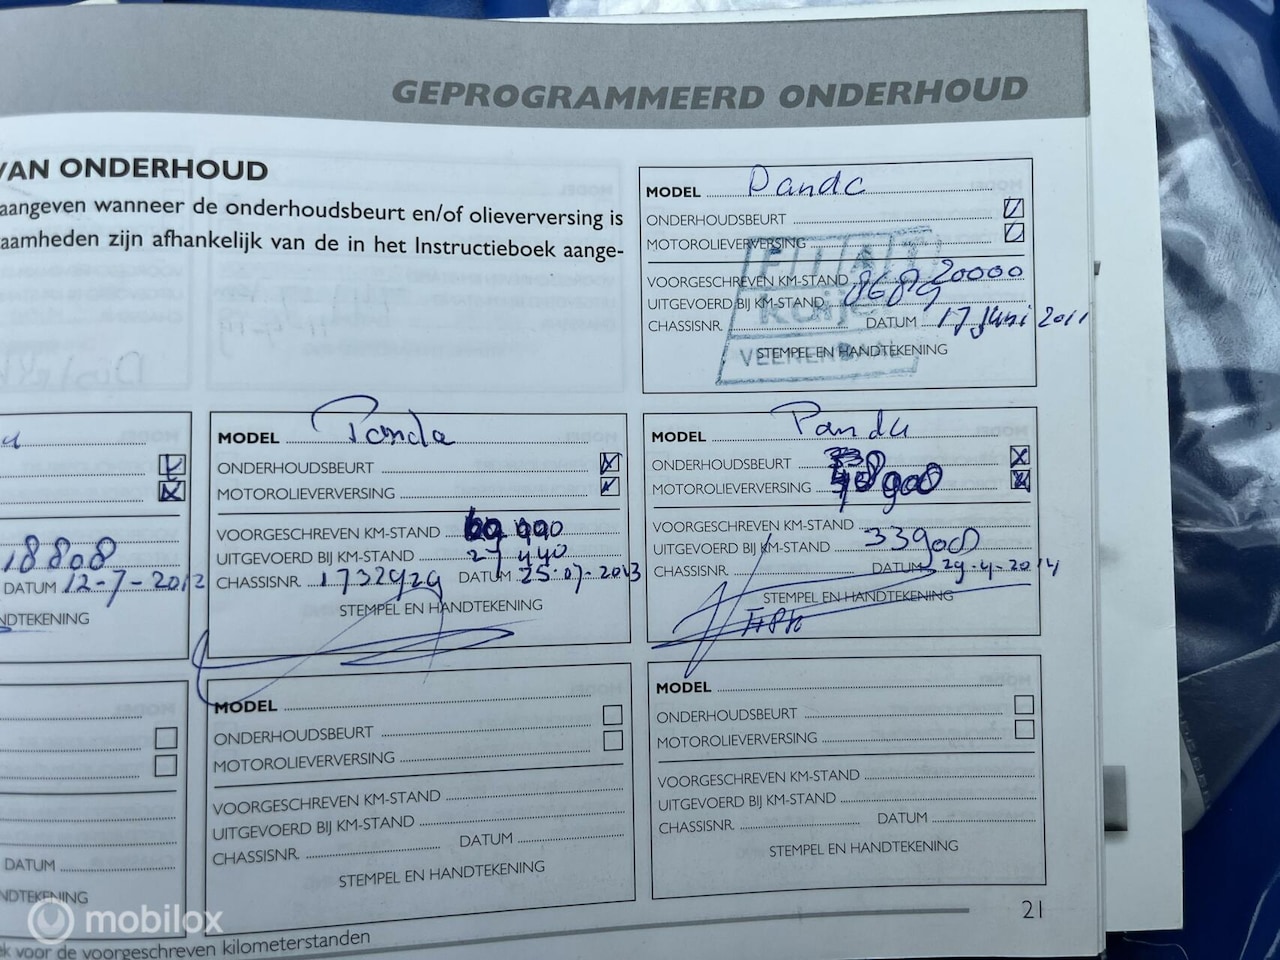 GEPROGRAMMEERD ONDERHOUD
VAN ONDERHOUD
aangeven wanneer de onderhoudsbeurt en/of olieverversing is
zaamheden zijn afhankelijk van de in het Instructieboek aange-
MODEL Panda
ONDERHOUDSBEURT
MOTOROLIEVERVERSING
VOORGESCHREVEN KM-STAND 20000
UITGEVOERD BIJ KM-STAND 8689
CHASSISNR. DATUM 17 Juni 2011
STEMPEL EN HANDTEKENING
FIAT
Kuijer
VEENENDAAL
18808
DATUM 12-7-2012
NDTEKENING
MODEL Panda
ONDERHOUDSBEURT
MOTOROLIEVERVERSING
VOORGESCHREVEN KM-STAND
UITGEVOERD BIJ KM-STAND 27 440
CHASSISNR. 1732929 DATUM 25-07-2013
STEMPEL EN HANDTEKENING
MODEL Panda
ONDERHOUDSBEURT
MOTOROLIEVERVERSING
VOORGESCHREVEN KM-STAND
UITGEVOERD BIJ KM-STAND 33908
CHASSISNR. DATUM 29-4-2014
STEMPEL EN HANDTEKENING
DATUM
NDTEKENING
MODEL
ONDERHOUDSBEURT
MOTOROLIEVERVERSING
VOORGESCHREVEN KM-STAND
UITGEVOERD BIJ KM-STAND
CHASSISNR. DATUM
STEMPEL EN HANDTEKENING
MODEL
ONDERHOUDSBEURT
MOTOROLIEVERVERSING
VOORGESCHREVEN KM-STAND
UITGEVOERD BIJ KM-STAND
CHASSISNR. DATUM
STEMPEL EN HANDTEKENING
21
ek voor de voorgeschreven kilometerstanden
mobilox